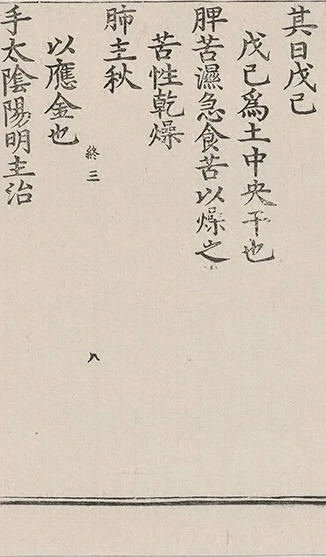 其日戊己
戊己爲土中央干也
脾苦濕急食苦以燥之
苦性乾燥
肺主秋
以應金也
終三
八
手太陰陽明主治